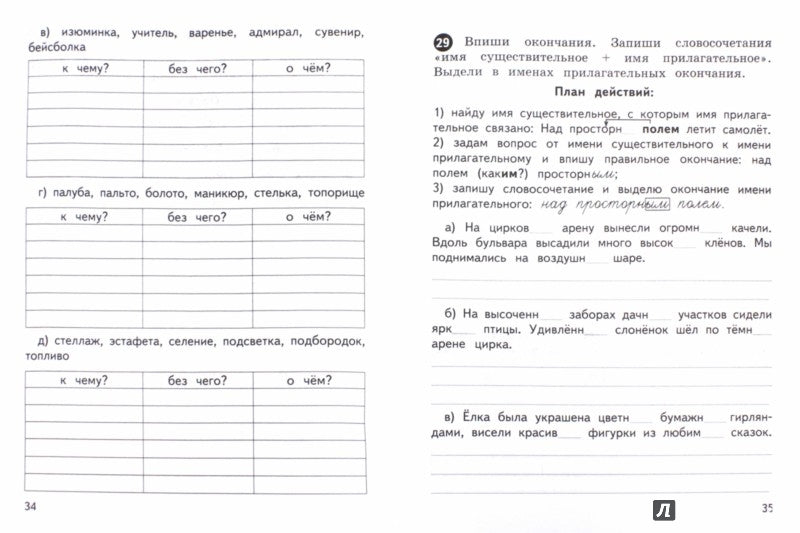 в) изюминка, учитель, варенье, адмирал, сувенир,
бейсболка
к чему? без чего? о чём?
г) палуба, пальто, болото, маникюр, стелька, топорище
к чему? без чего? о чём?
д) стеллаж, эстафета, селение, подсветка, подбородок,
топливо
к чему? без чего? о чём?
34
29 Впиши окончания. Запиши словосочетания
«имя существительное + имя прилагательное».
Выдели в именах прилагательных окончания.
План действий:
1) найду имя существительное, с которым имя прилага-
тельное связано: Над просторн__ полем летит самолёт.
2) задам вопрос от имени существительного к имени
прилагательному и впишу правильное окончание: над
полем (каким?) просторным;
3) запишу словосочетание и выделю окончание имени
прилагательного: над просторным полем.
а) На цирков___ арену вынесли огромн___ качели.
Вдоль бульвара высадили много высок___ клёнов. Мы
поднимались на воздушн___ шаре.
б) На высоченн___ заборах дачн___ участков сидели
ярк___ птицы. Удивлённ___ слонёнок шёл по тёмн___
арене цирка.
в) Ёлка была украшена цветн___ бумажн___ гирлян-
дами, висели красив___ фигурки из любим___ сказок.
Л
35